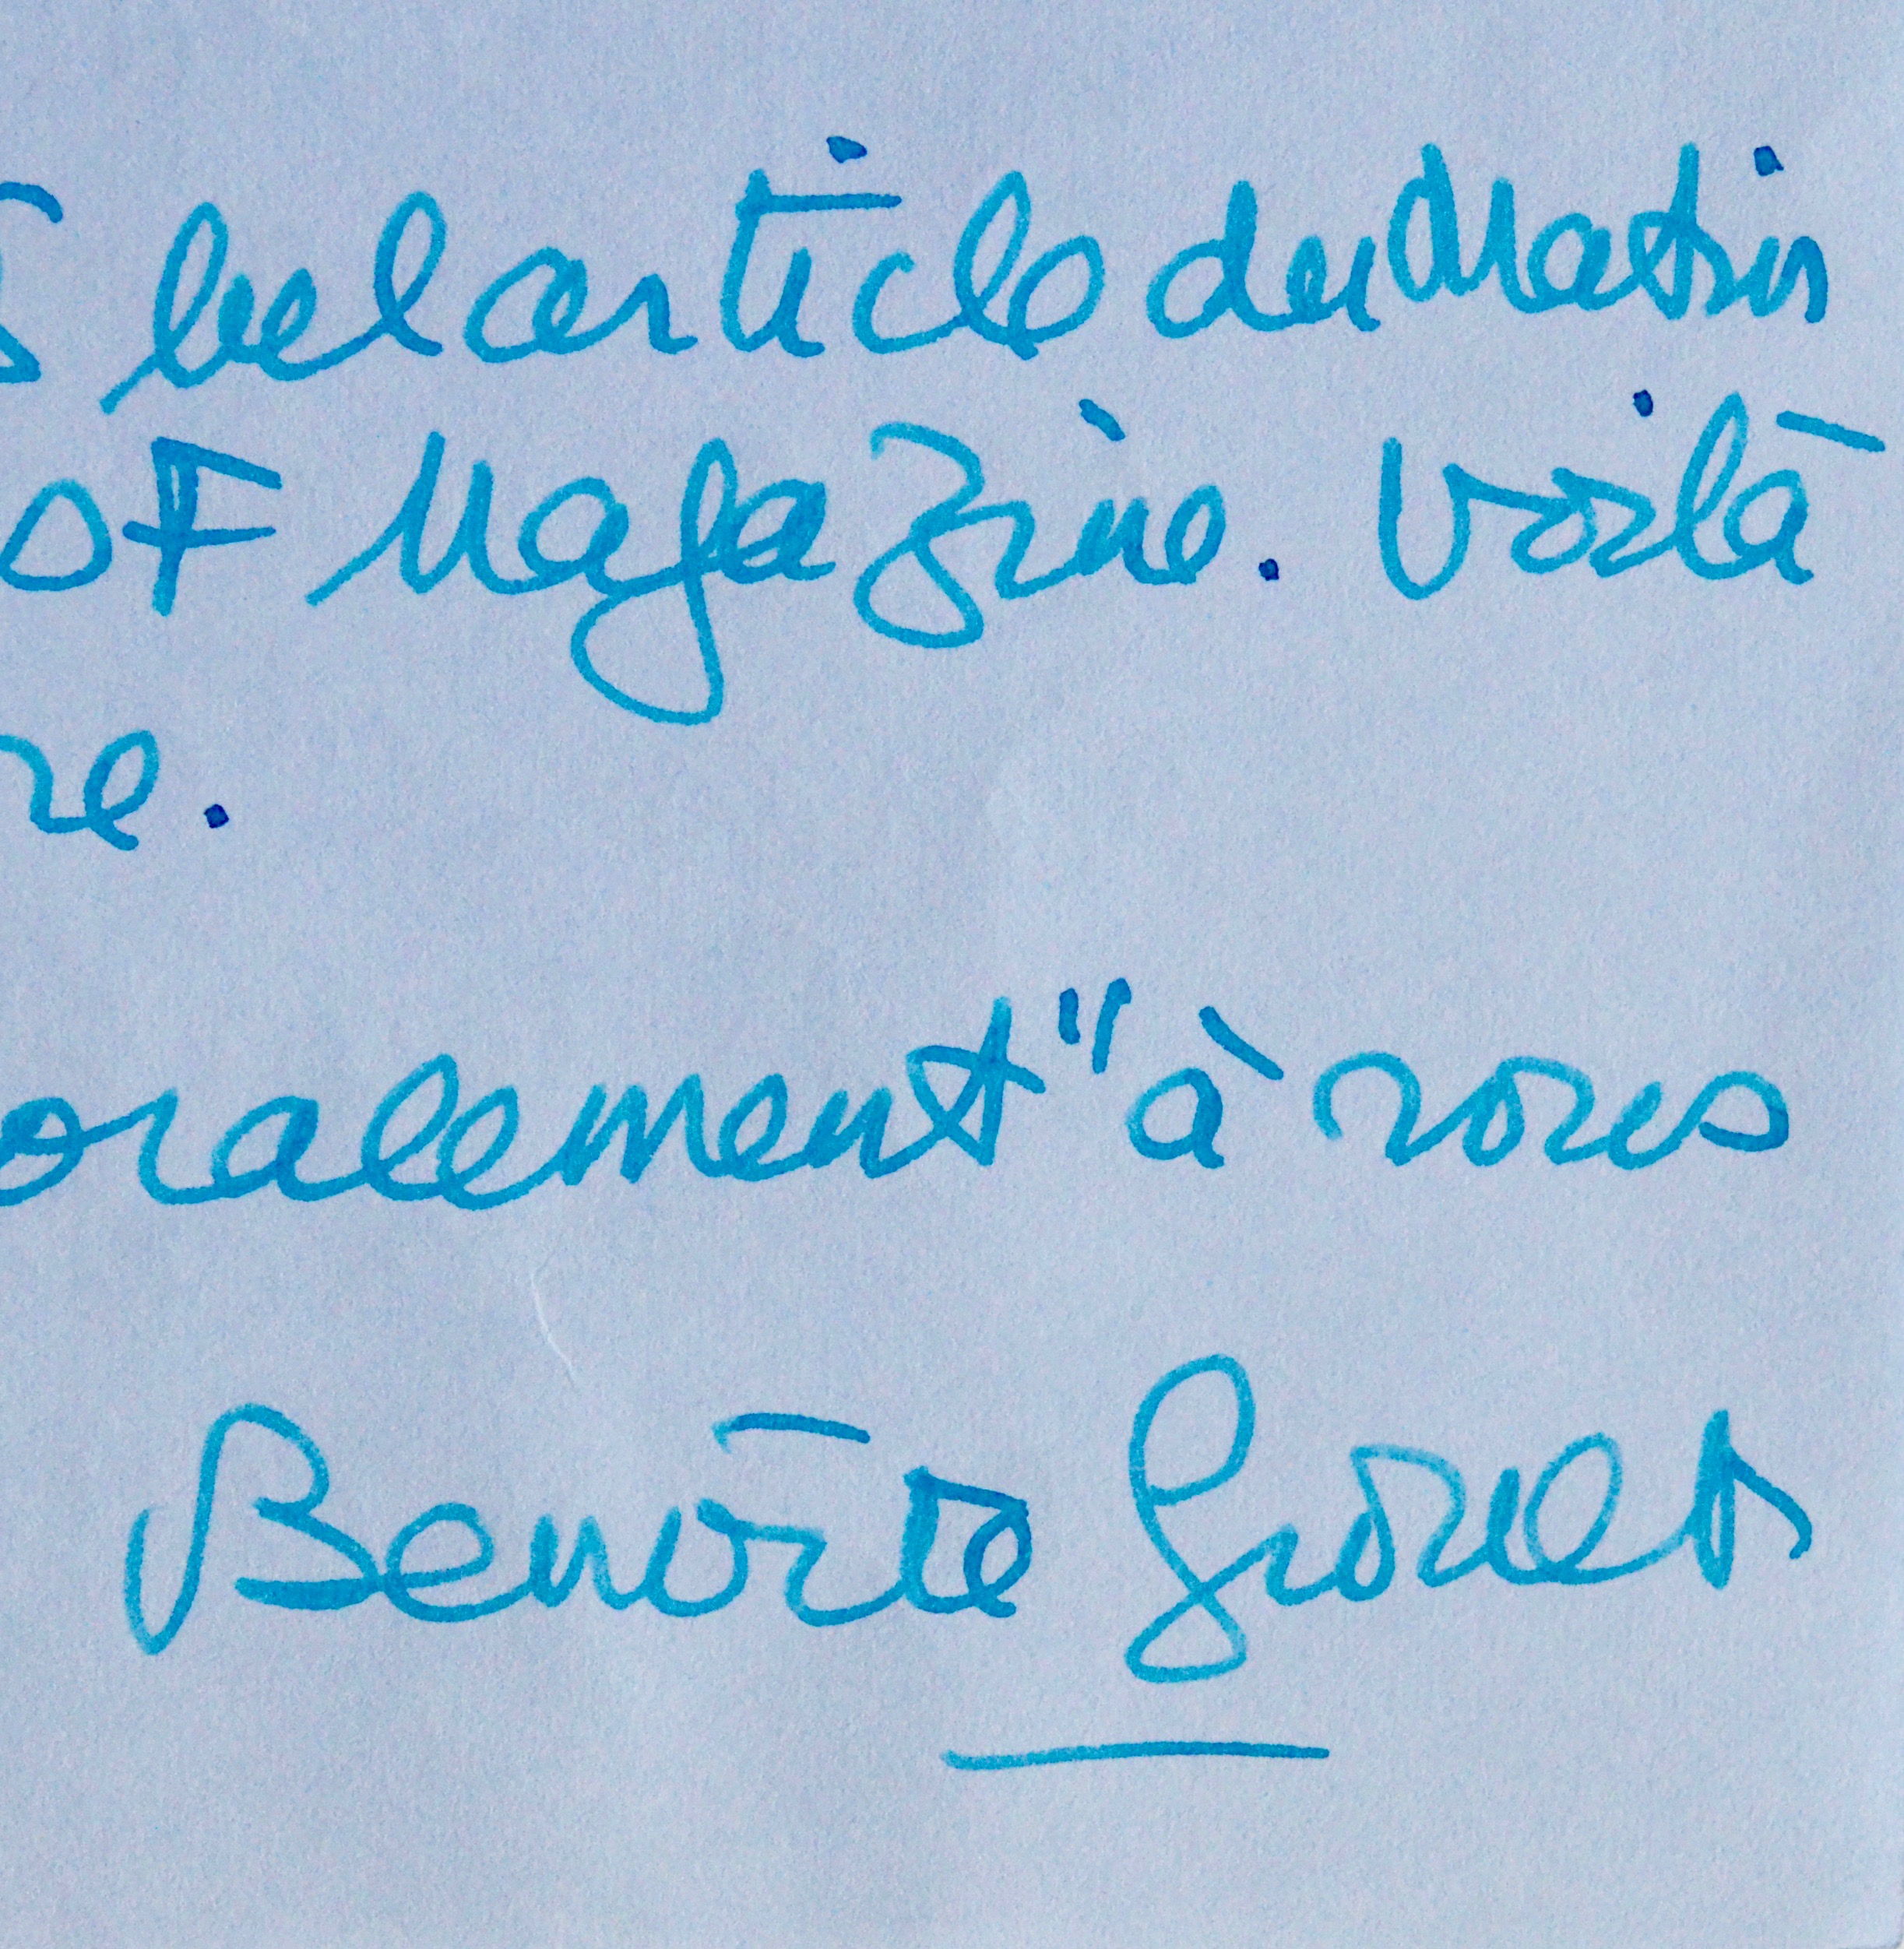 bel article du Matin
F Magazine. Voilà
re.
oralement" à vous
Benoîte Groult